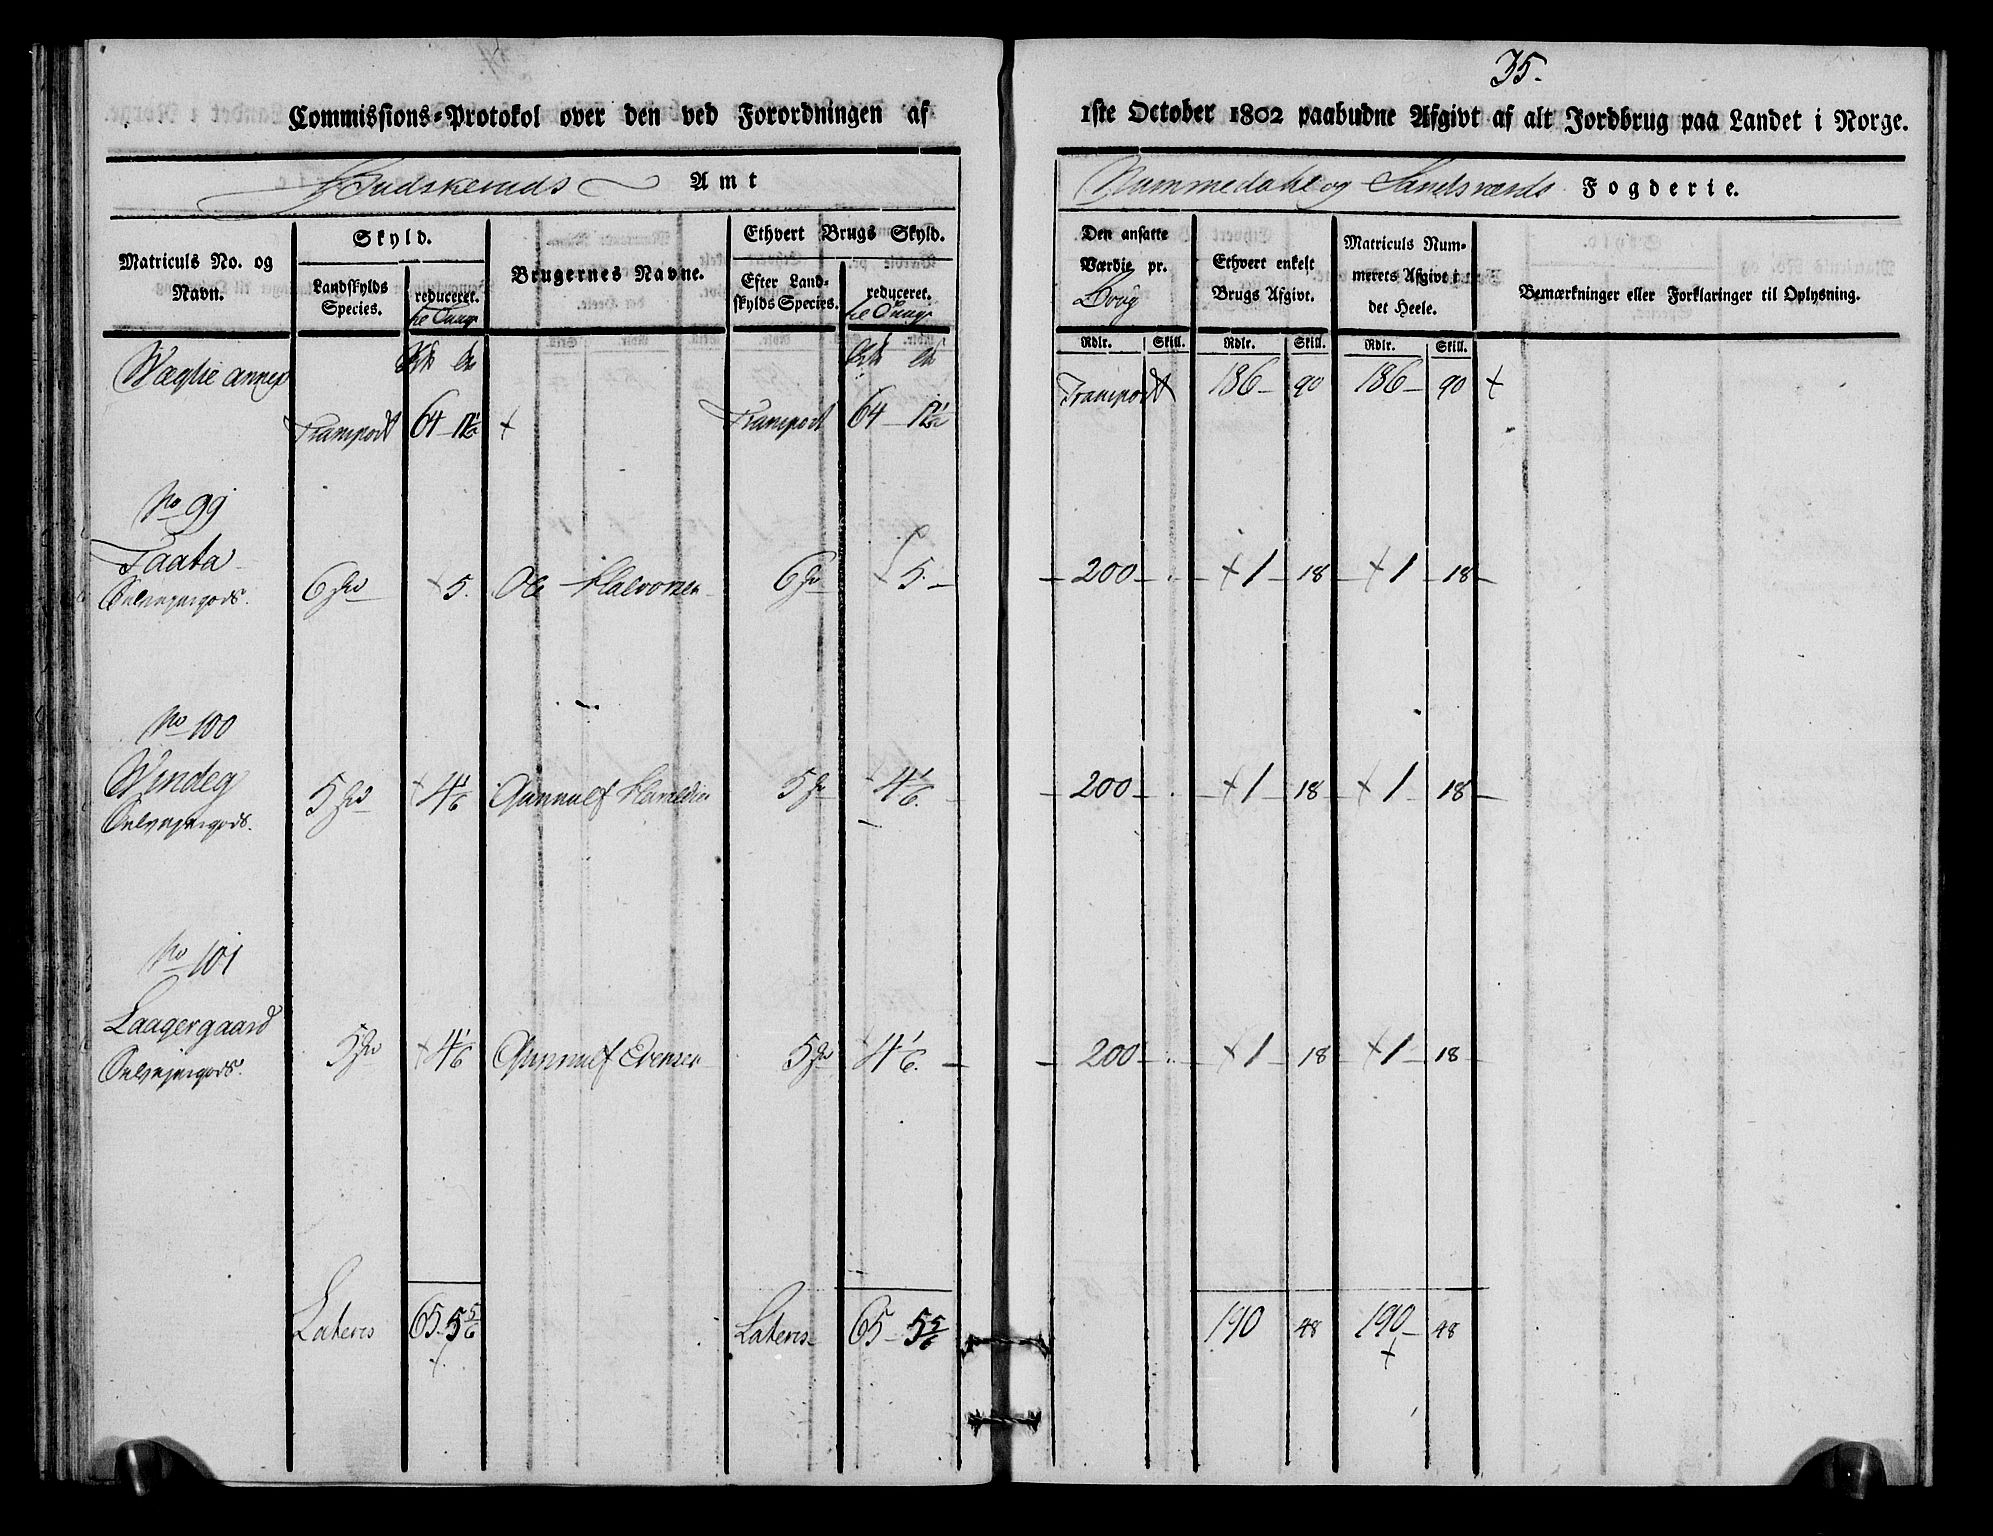 35.
Commissions-Protokol over den ved Forordningen af 1ste October 1802 paabudne Afgivt af alt Jordbrug paa Landet i Norge.
Budskeruds Amt
Nummedahl og Sandsværds Fogderie.
Matriculs No. og Navn.
Skyld.
Landskylds Species.
reduceret.
Brugernes Navne.
Ethvert Brugs Skyld.
Efter Landskylds Species.
reduceret.
Den ansatte Værdie pr.
Ethvert enkelt Brugs Afgivt.
Matriculs Nummerets Afgivt i det Heele.
Bemærkninger eller Forklaringer til Oplysning.
Rdlr. Skill. Rdlr. Skill. Rdlr. Skill.
Wæglie annex
Transport 186 - 90 186 - 90 +
Transport 64 - 1 1/2 + Transport 64 - 1 1/2
No 99
Taata 6 + 5. Ole Halvorsen 6 + 5. - 200 - + 1 - 18 - + 1 - 18 -
No 100
Windeg 5 + 4 1/6 Gunnulf 5 + 4 1/6. - 200 - + 1 - 18 - + 1 - 18 -
No 101
Laagergaard 5 + 4 1/6 Gunnulf Evensen 5 4 1/6. - 200 - + 1 - 18 - + 1 - 18 -
Lateris 65. 5 5/6 Lateris 65 - 5 5/6 190 48 190 - 48
+ +